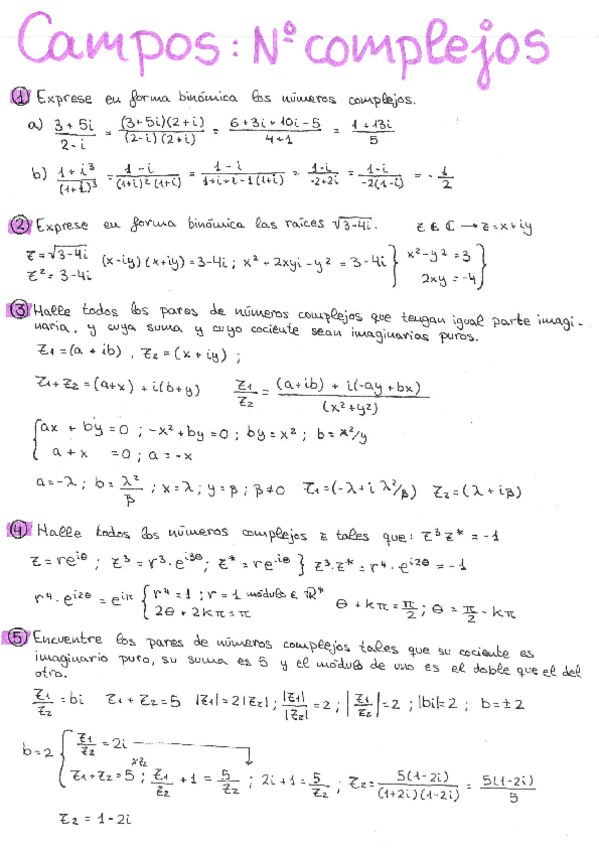 Campos: Nº complejos
① Exprese en forma binómica los números complejos.
a) (3+5i)/(2-i) = ((3+5i)(2+i))/((2-i)(2+i)) = (6+3i+10i-5)/(4+1) = (1+13i)/5
b) (1+i³)/(1+i)³ = (1-i)/((1+i)²(1+i)) = (1-i)/(1+i+i-1(1+i)) = (1-i)/(-2+2i) = (1-i)/(-2(1-i)) = -1/2
② Exprese en forma binómica las raíces √3-4i. z ∈ ℂ → z=x+iy
z=√3-4i (x-iy)(x+iy)=3-4i; x²+2xyi-y² = 3-4i } x²-y²=3
z²=3-4i 2xy=-4 }
③ Halle todos los pares de números complejos que tengan igual parte imagi-
naria, y cuya suma y cuyo cociente sean imaginarios puros.
z₁=(a+ib), z₂=(x+iy);
z₁+z₂=(a+x)+i(b+y) z₁/z₂ = ((a+ib)+i(-ay+bx))/(x²+y²)
{ ax+by=0; -x²+by=0; by=x²; b=x²/y
a+x =0; a=-x
a=-λ; b=λ²/β; x=λ; y=β; β≠0 z₁=(-λ+i λ²/β) z₂=(λ+iβ)
④ Halle todos los números complejos z tales que: z³z*=-1
z=re^iθ; z³=r³·e^i3θ; z*=re^-iθ } z³·z*=r⁴·e^i2θ=-1
r⁴·e^i2θ=e^iπ { r⁴=1; r=1 módulo ∈ ℝ*
2θ+2kπ=π θ+kπ=π/2; θ=π/2-kπ
⑤ Encuentre los pares de números complejos tales que su cociente es
imaginario puro, su suma es 5 y el módulo de uno es el doble que el del
otro.
z₁/z₂=bi z₁+z₂=5 |z₁|=2|z₂|; |z₁|/|z₂|=2; |z₁/z₂|=2; |bi|=2; b=±2
b=2 { z₁/z₂=2i
z₁+z₂=5; z₁/z₂+1=5/z₂; 2i+1=5/z₂; z₂=5(1-2i)/((1+2i)(1-2i))=5(1-2i)/5
z₂=1-2i